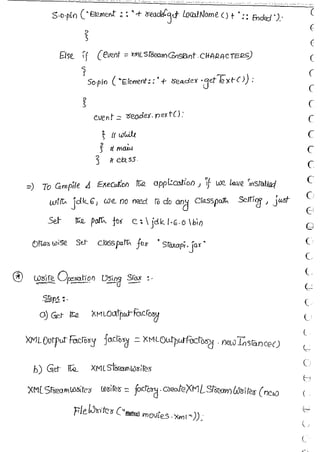 S.o.pln ("Element :: "+ reader.get LocalName () + ":: Ended");
}
Else if (event = XML StreamConstant.CHARACTERS)
{
Sopln ("Element::"+ reader.getText());
}
event = reader.next();
} // while
} // main
} // class.
=) To Compile & Execution the application, if we have installed
with jdk 6, we no need to do any Classpath Setting, just
Set the path for c:\jdk1.6.0\bin
Otherwise Set classpath for "Staxapi.jar"
* Write Operation Using Stax :-
Steps:-
a) Get the XMLOutputFactory
XMLOutput Factory factory = XMLOutputFactory.newInstance()
b) Get the XMLStreamWriter
XMLStreamWriter writer = factory.createXMLStreamWriter(new
FileWriter("movies.xml"));